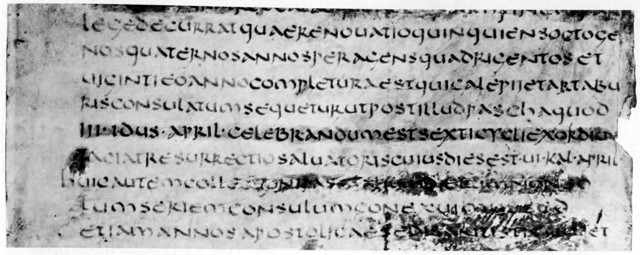 LEGEDECURRATQUAERENOUATIOQUINQUIENSOCTOGE
NOSQUATERNOSANNOSPERAGENSQUADRIGENTOSET
UIGINTIEOANNOCOMPLETURAESTQUICALEPIIETARTABU
RISCONSULATUMSEQUETURUTPOSTILLUDPASCHAQUOD
III·IDUS·APRIL·CELEBRANDUMESTSEXTICYCLIEXORDIEN
FACIATRESURRECTIOSALUATORISCUIUSDIESEST·UI·KAL·APRIL·
HUICAUTEMCOLLE
TUMSERIEMCONSULUMCONEXUI
ETIAMANNOSAPOSTOLICAESEDIS